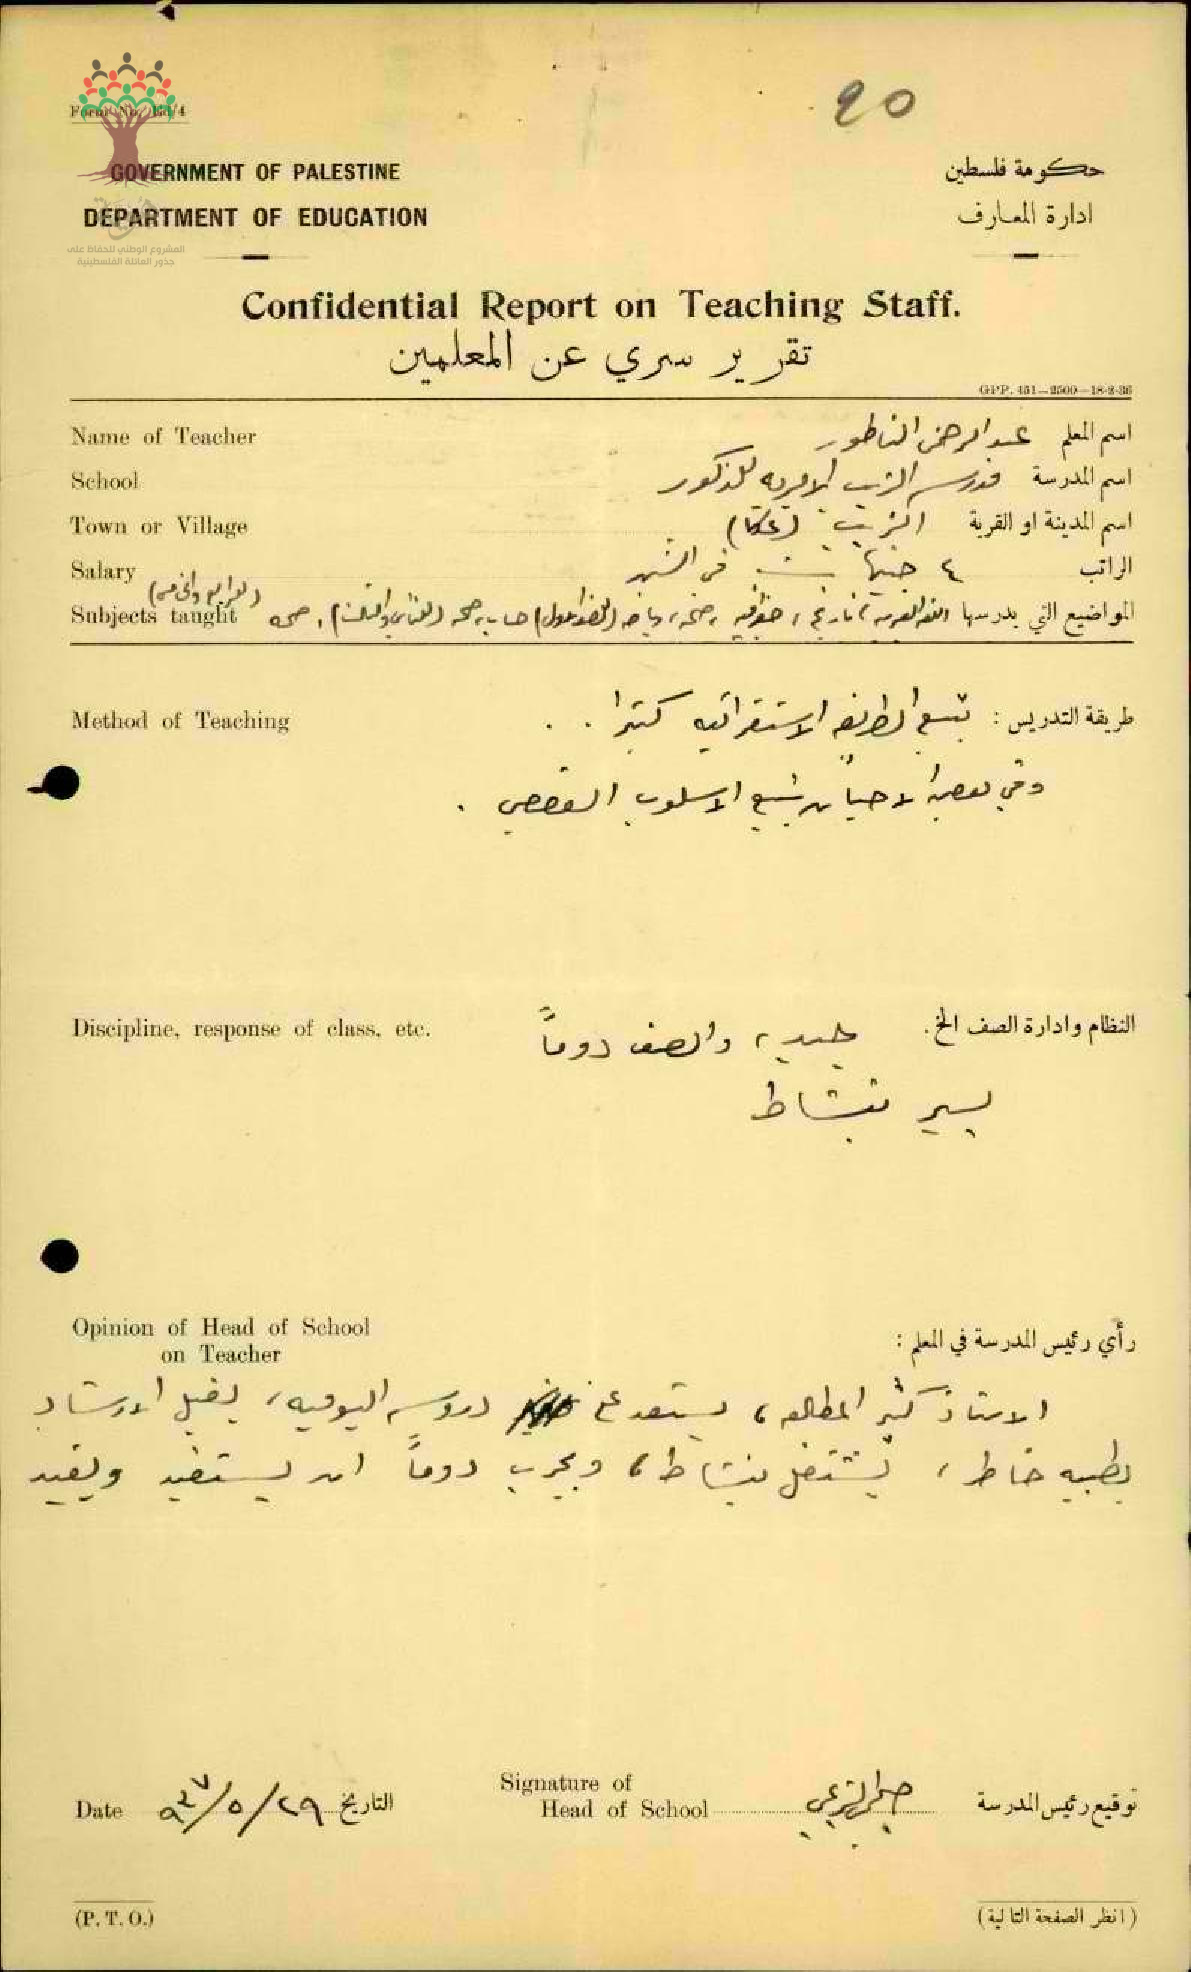 90
Form No. Ed/4
GOVERNMENT OF PALESTINE
حكومة فلسطين
DEPARTMENT OF EDUCATION
ادارة المعارف
المشروع الوطني للحفاظ على
جذور العائلة الفلسطينية
Confidential Report on Teaching Staff.
تقرير سري عن المعلمين
G.P.P. 451—2500—18-2-36
Name of Teacher اسم المعلم عبد الرحمن الناطور
School اسم المدرسة مدرسة الزيب الاميرية للذكور
Town or Village اسم المدينة او القرية الزيب (عكا)
Salary الراتب ٤ جنيهات في الشهر
(الرابع والخامس)
Subjects taught المواضيع التي يدرسها اللغة العربية، تاريخ، جغرافيه، صحة، رياضه (الصف الاول) حساب، صحه (الثاني والثالث)، صحه
Method of Teaching طريقة التدريس : يتبع الطريقه الاستقرائيه كثيرا . .
وفي بعض الاحيان يتبع الاسلوب القصصي .
Discipline, response of class, etc. النظام وادارة الصف الخ. جيد، والصف دوماً
يسير بنشاط
Opinion of Head of School
on Teacher
رأي رئيس المدرسة في المعلم :
الاستاذ كثير المطالعه، يستعد دروسه اليوميه، يقبل الارشاد
بطيبه خاطر، يشتغل بنشاط، ويجرب دوماً ان يستفيد ويفيد
Date ٢٩/٥/٩٣٧ التاريخ
Signature of
Head of School توقيع رئيس المدرسة
(P. T. O.)
(انظر الصفحة التالية)